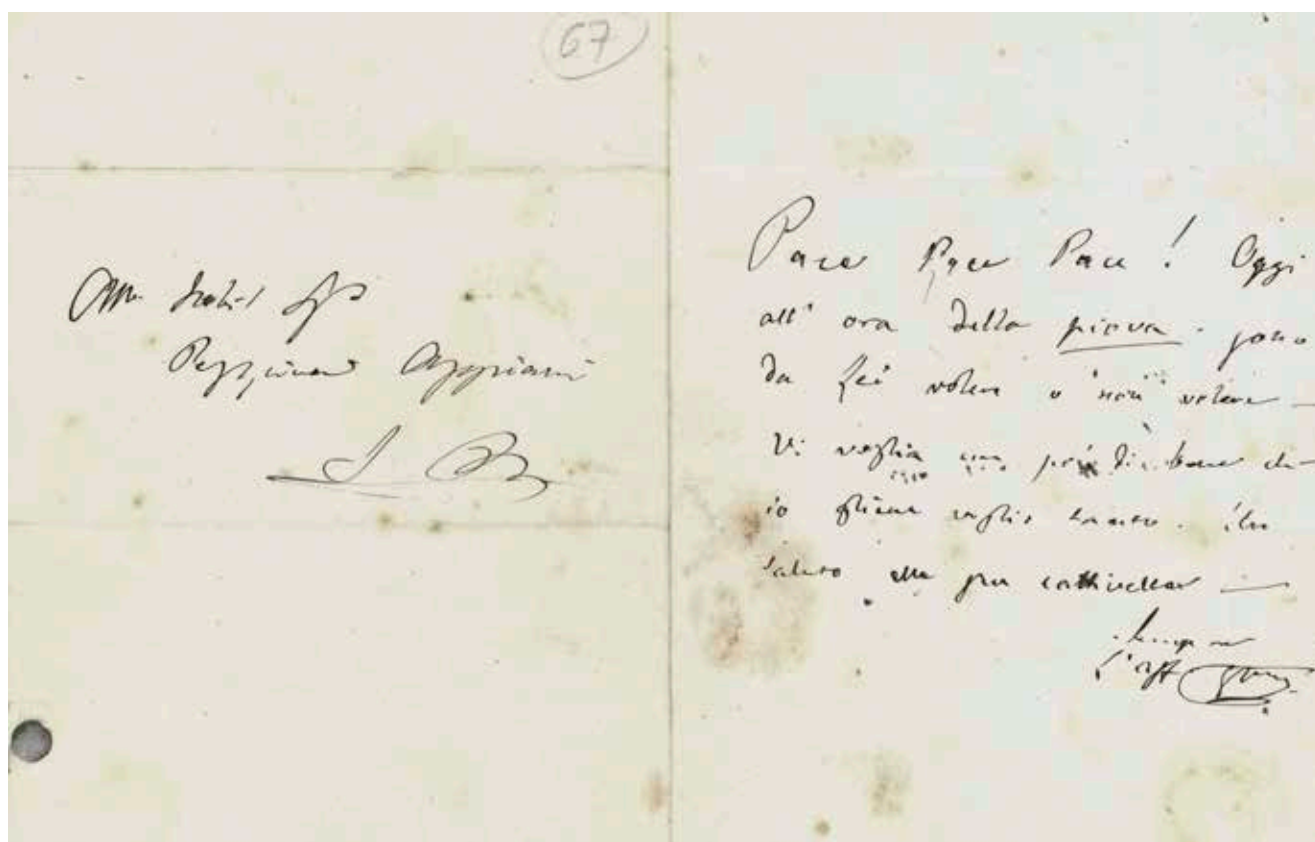 67
Alla Nobil
Peppina Appiani
S. P. M.
Pace Pace Pace! Oggi
all'ora della piova. sono
da Lei volere o non volere —
Mi voglia un po' di bene che
io gliene voglio tanto. Un
saluto alla più cattivella —